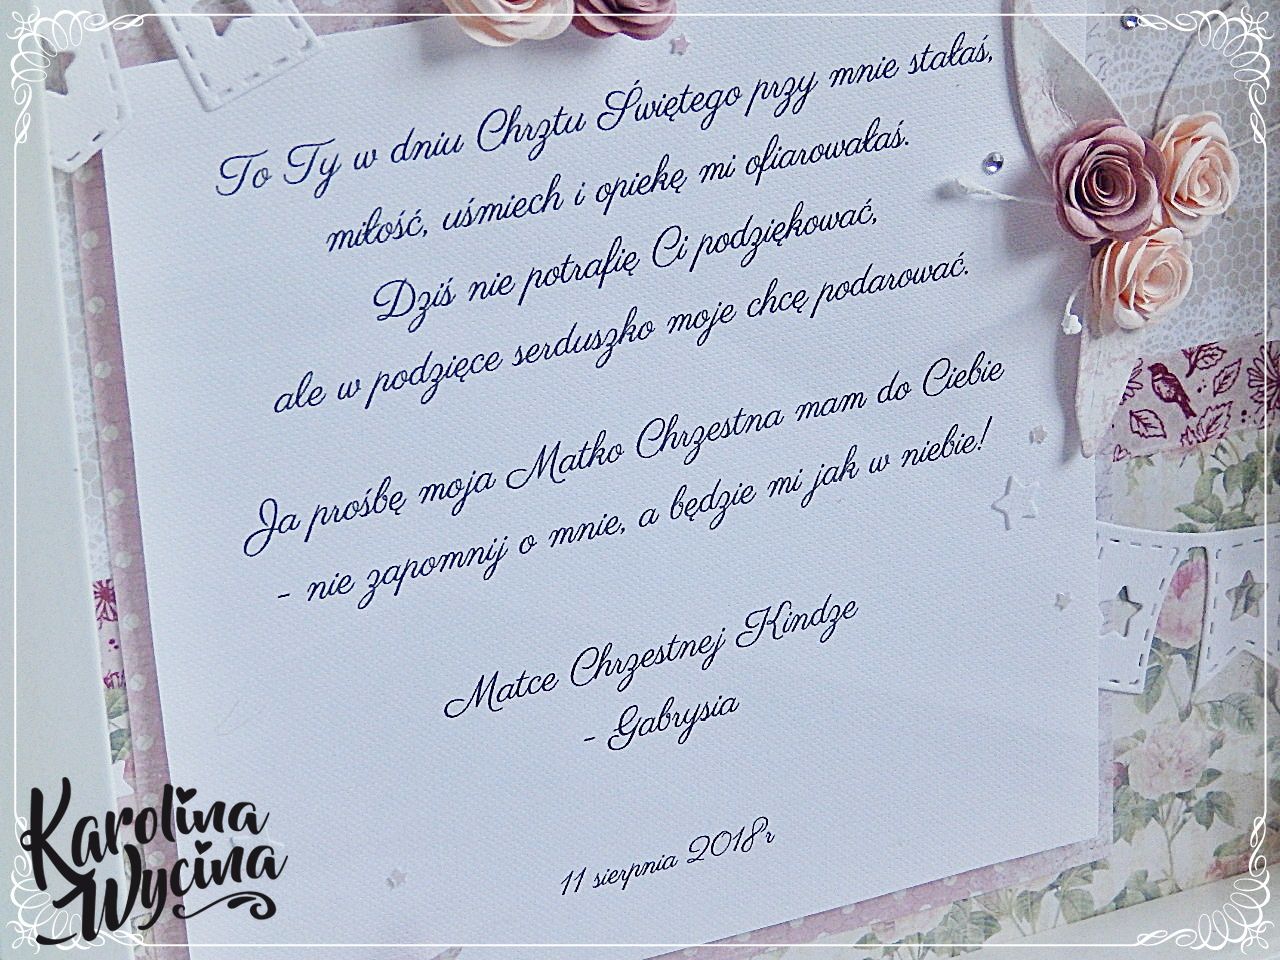 To Ty w dniu Chrztu Świętego przy mnie stałaś,
miłość, uśmiech i opiekę mi ofiarowałaś.
Dziś nie potrafię Ci podziękować,
ale w podzięce serduszko moje chcę podarować.
Ja prośbę moja Matko Chrzestna mam do Ciebie
- nie zapomnij o mnie, a będzie mi jak w niebie!
Matce Chrzestnej Kindze
- Gabrysia
11 sierpnia 2018r
Karolina
Wycina